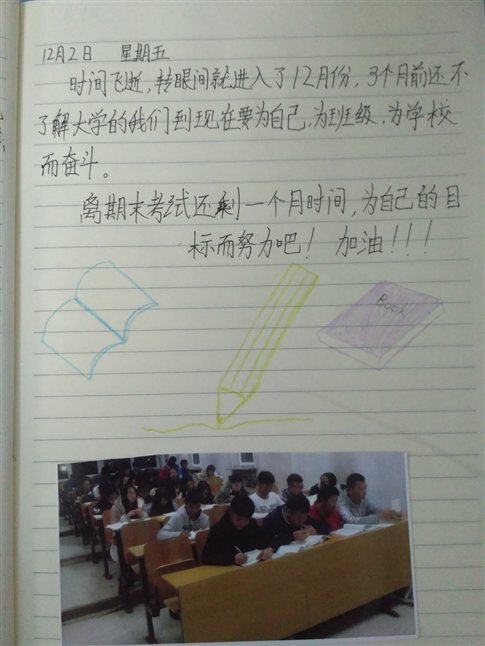 12月2日 星期五
时间飞逝，转眼间就进入了12月份，3个月前还不
了解大学的我们到现在要为自己，为班级，为学校
而奋斗。
离期末考试还剩一个月时间，为自己的目
标而努力吧！ 加油！！！
Book